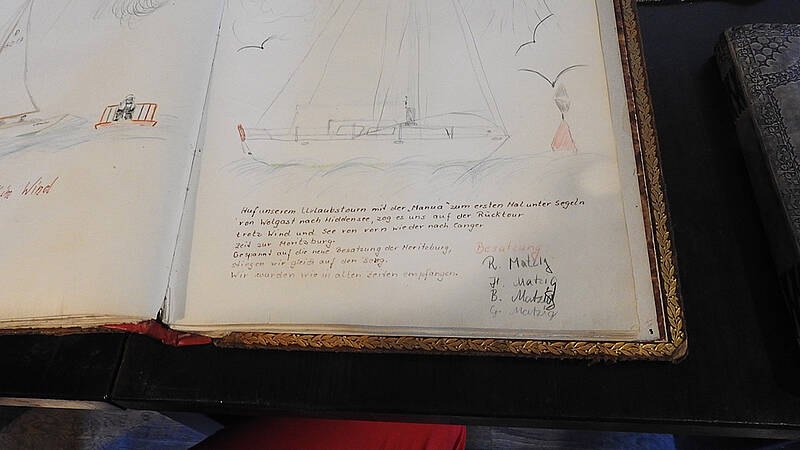 Wind
Auf unserem Urlaubstourn mit der „Manua" zum ersten Mal unter Segeln
von Wolgast nach Hiddensee, zog es uns auf der Rücktour
trotz Wind und See von vorn wieder nach Langer
Zeit zur Moritzburg.
Gespannt auf die neue Besatzung der Moritzburg,
stiegen wir gleich auf den Berg.
Wir wurden wie in alten Zeiten empfangen.
Besatzung
R. Matzig
H. Matzig
B. Matzig
G. Matzig